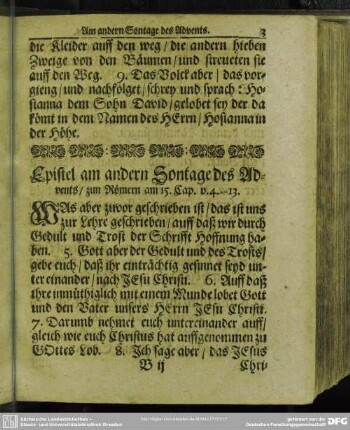 Am andern Sontage des Advents. 3
die Kleider auff den weg / die andern hieben
Zweige von den Bäumen / und streueten sie
auff den Weg. 9. Das Volck aber / das vor-
gieng / und nachfolget / schrey und sprach: Ho-
sianna dem Sohn David / gelobet sey der da
kömt in dem Namen des HErrn / Hosianna in
der Höhe.
Epistel am andern Sontage des Ad-
vents / zun Römern am 15. Cap. v. 4.-13.
WAs aber zuvor geschrieben ist / das ist uns
zur Lehre geschrieben / auff daß wir durch
Gedult und Trost der Schrifft Hoffnung ha-
ben. 5. Gott aber der Gedult und des Trosts /
gebe euch / daß ihr einträchtig gesinnet seyd un-
ter einander / nach JEsu Christi. 6. Auff daß
ihr einmüthiglich mit einem Munde lobet Gott
und den Vater unsers HErrn JEsu Christi.
7. Darumb nehmet euch untereinander auff /
gleich wie euch Christus hat auffgenommen zu
GOttes Lob. 8. Jch sage aber / das JEsus
B ij Chri-